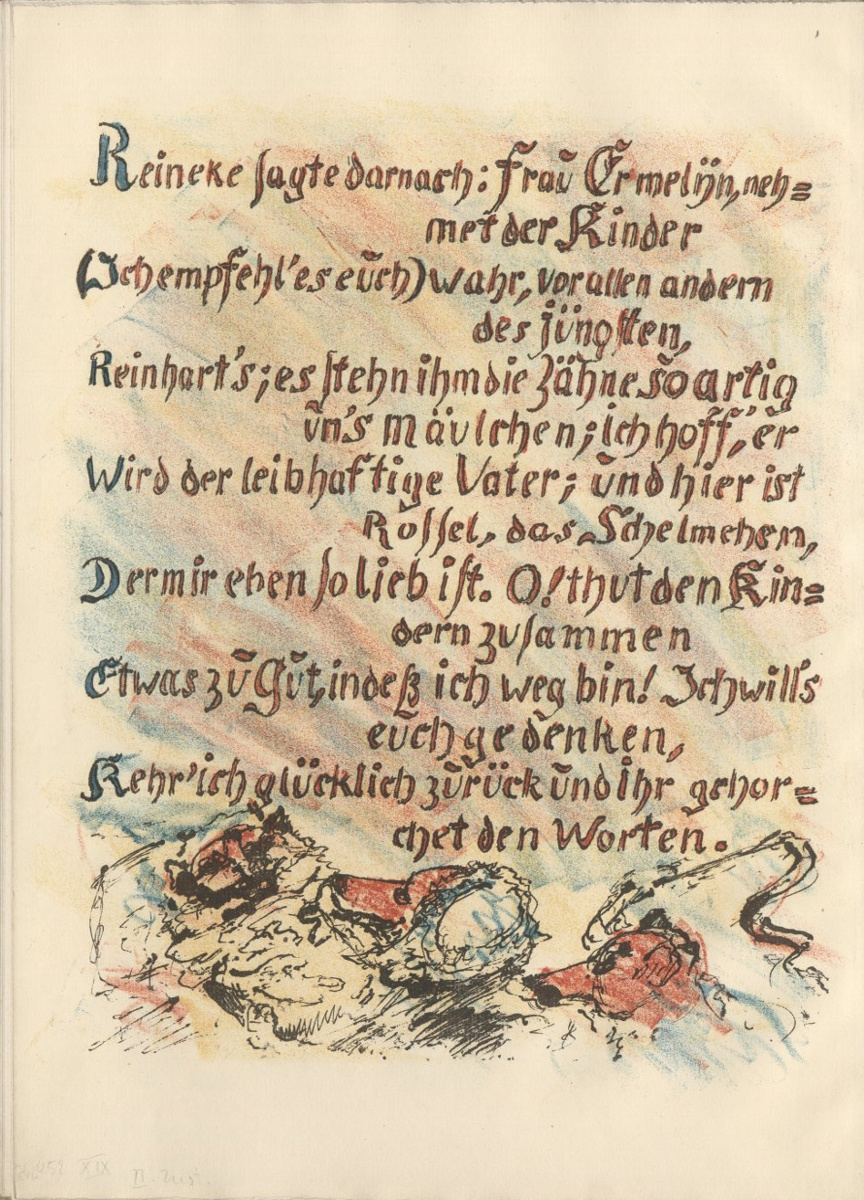 Reineke sagte darnach: Frau Ermelyn, neh=
met der Kinder
(Ich empfehl'es euch) wahr, vor allen andern
des jüngsten,
Reinhart's; es stehn ihm die Zähne so artig
um's Mäulchen; ich hoff', er
Wird der leibhaftige Vater; und hier ist
Rossel, das Schelmchen,
Der mir eben so lieb ist. O! thut den Kin=
dern zusammen
Etwas zu Gut, indeß ich weg bin! Ich will's
euch gedenken,
Kehr' ich glücklich zurück und ihr gehor=
chet den Worten.
XIX